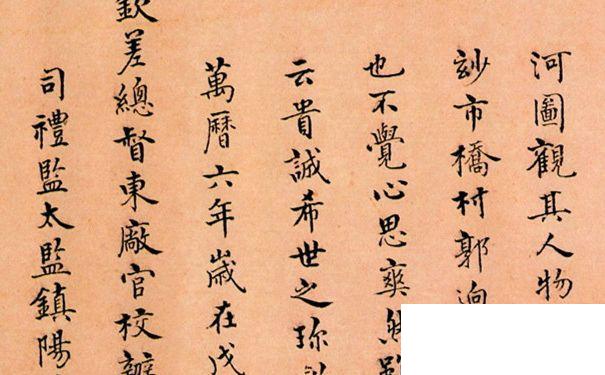 河圖觀其人物
玅市橋村郭迥
也不覺心思爽然
云貴誠希世之珎
萬曆六年歲在戊
欽差總督東廠官校辦
司禮監太監鎮陽